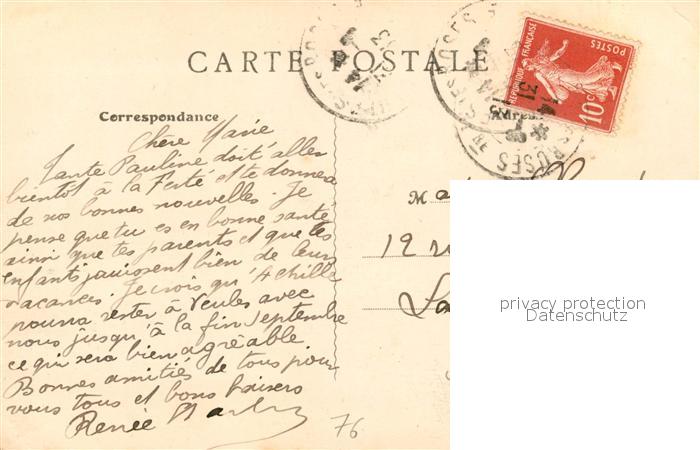 CARTE POSTALE
REPUBLIQUE FRANÇAISE
POSTES
10c
Correspondance
Chère Marie
Tante Pauline doit aller
bientôt à la Ferté et te donnera
de nos bonnes nouvelles. Je
pense que tu es en bonne santé
ainsi que tes parents et que les
enfants jouissent bien de leurs
vacances. Je crois qu'Achille
pourra rester à Veules avec
nous jusqu'à la fin Septembre
ce qui sera bien agréable.
Bonnes amitiés de tous pour
vous tous et bons baisers
Renée
76
M
12
privacy protection
Datenschutz